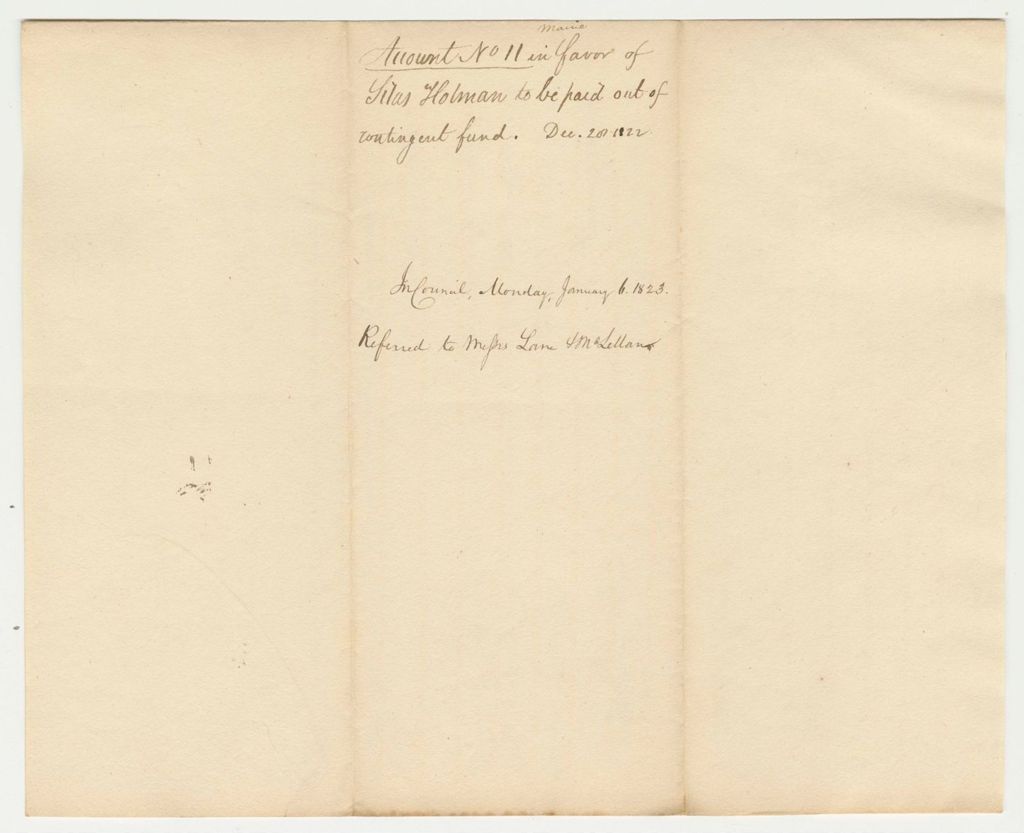 Maine
Account No 11 in favor of
Silas Holman to be paid out of
contingent fund. Dec. 20 1822
In Council, Monday, January 6. 1823.
Referred to Messrs Lane & McLellan